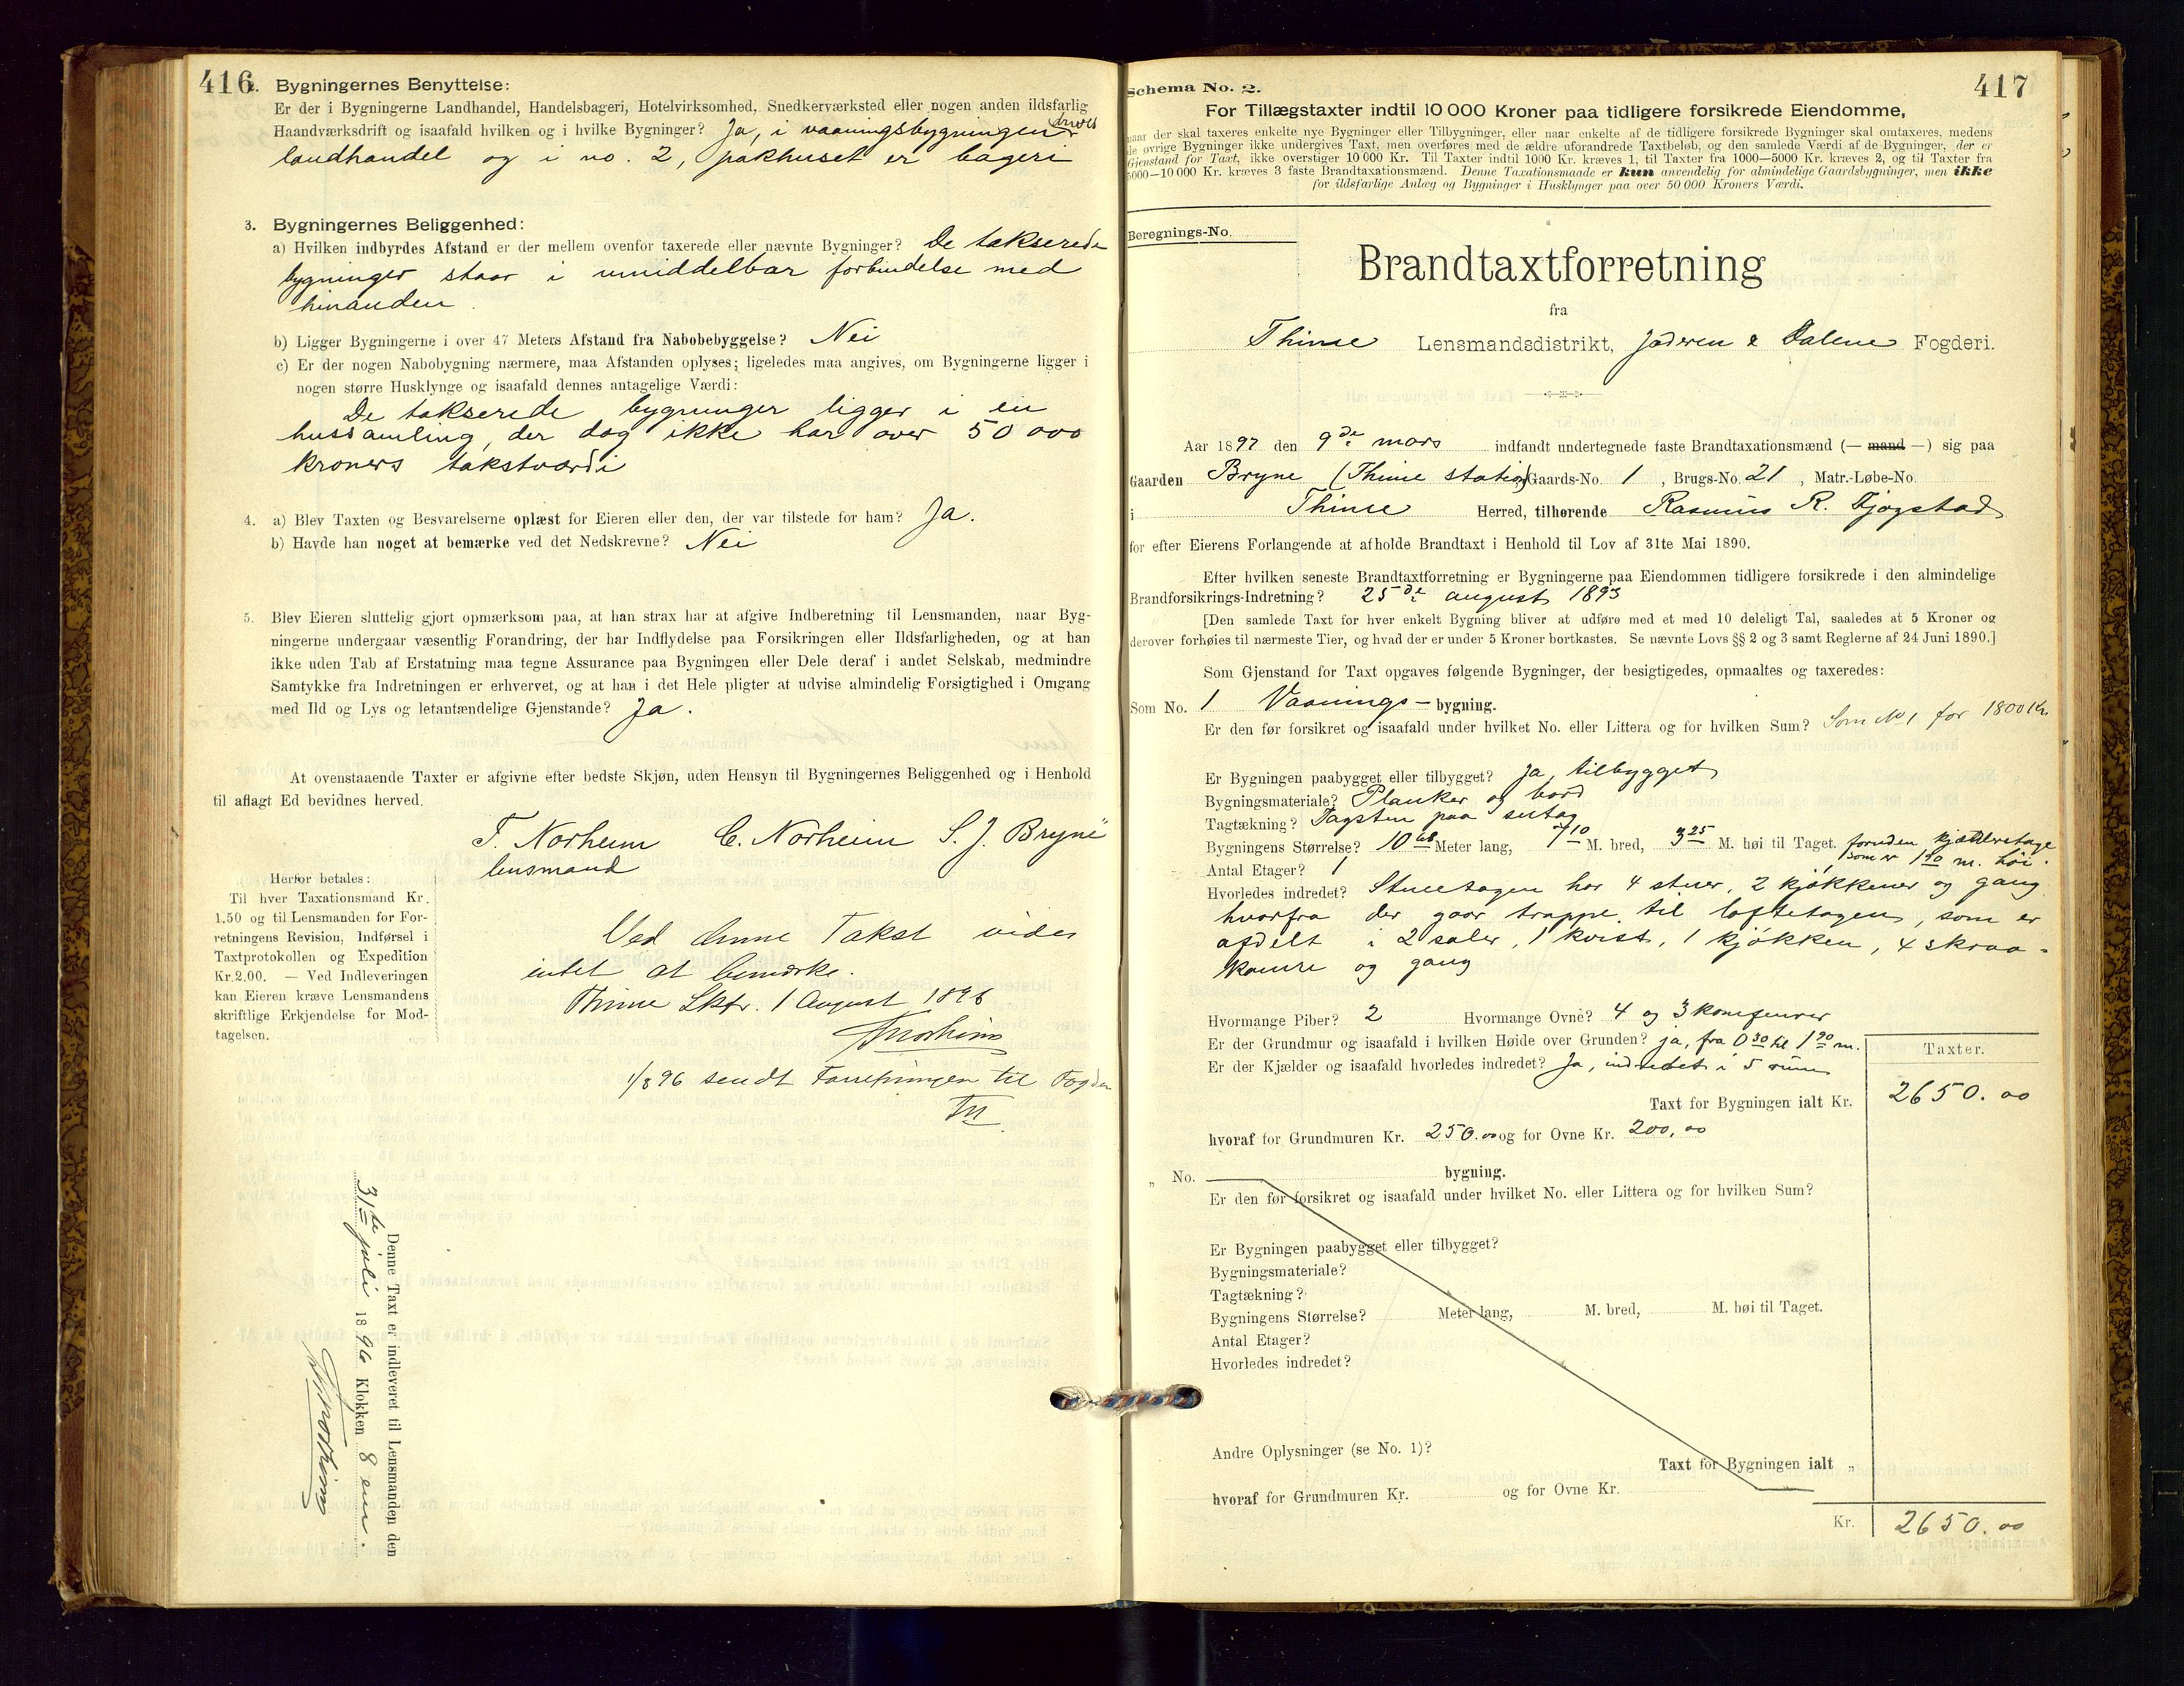 416
2. Bygningernes Benyttelse:
Er der i Bygningerne Landhandel, Handelsbageri, Hotelvirksomhed, Snedkerværksted eller nogen anden ildsfarlig
Haandværksdrift og isaafald hvilken og i hvilke Bygninger? Ja, i vaaningsbygningen drives
landhandel og i no. 2, pakhuset er bageri
3. Bygningernes Beliggenhed:
a) Hvilken indbyrdes Afstand er der mellem ovenfor taxerede eller nævnte Bygninger? De takserede
bygninger staar i umiddelbar forbindelse med
hinanden.
b) Ligger Bygningerne i over 47 Meters Afstand fra Nabobebyggelse? Nei
c) Er der nogen Nabobygning nærmere, maa Afstanden oplyses; ligeledes maa angives, om Bygningerne ligger i
nogen større Husklynge og isaafald dennes antagelige Værdi:
De takserede bygninger ligger i en
hussamling, der dog ikke har over 50 000
kroners takstværdi
4. a) Blev Taxten og Besvarelserne oplæst for Eieren eller den, der var tilstede for ham? Ja.
b) Havde han noget at bemærke ved det Nedskrevne? Nei
5. Blev Eieren sluttelig gjort opmærksom paa, at han strax har at afgive Indberetning til Lensmanden, naar Byg-
ningerne undergaar væsentlig Forandring, der har Indflydelse paa Forsikringen eller Ildsfarligheden, og at han
ikke uden Tab af Erstatning maa tegne Assurance paa Bygningen eller Dele deraf i andet Selskab, medmindre
Samtykke fra Indretningen er erhvervet, og at han i det Hele pligter at udvise almindelig Forsigtighed i Omgang
med Ild og Lys og letantændelige Gjenstande? Ja.
At ovenstaaende Taxter er afgivne efter bedste Skjøn, uden Hensyn til Bygningernes Beliggenhed og i Henhold
til aflagt Ed bevidnes herved.
T. Norheim C. Norheim S. J. Bryne
lensmand
Herfor betales:
Til hver Taxationsmand Kr.
1,50 og til Lensmanden for For-
retningens Revision, Indførsel i
Taxtprotokollen og Expedition
Kr. 2,00. — Ved Indleveringen
kan Eieren kræve Lensmandens
skriftlige Erkjendelse for Mod-
tagelsen.
Ved denne Takst vides
intet at bemærke.
Thime Lktr. 1 August 1896
TNorheim
1/8 96 sendt Forretningen til Fogden
TN
Denne Taxt er indleveret til Lensmanden den
31te juli 1896 Klokken 8 em.
TNorheim
417
Schema No. 2.
For Tillægstaxter indtil 10 000 Kroner paa tidligere forsikrede Eiendomme,
naar der skal taxeres enkelte nye Bygninger eller Tilbygninger, eller naar enkelte af de tidligere forsikrede Bygninger skal omtaxeres, medens
de øvrige Bygninger ikke undergives Taxt, men overføres med de ældre uforandrede Taxtbeløb, og den samlede Værdi af de Bygninger, der er
Gjenstand for Taxt, ikke overstiger 10 000 Kr. Til Taxter indtil 1000 Kr. kræves 1, til Taxter fra 1000—5000 Kr. kræves 2, og til Taxter fra
5000—10 000 Kr. kræves 3 faste Brandtaxationsmænd. Denne Taxationsmaade er kun anvendelig for almindelige Gaardsbygninger, men ikke
for ildsfarlige Anlæg og Bygninger i Husklynger paa over 50 000 Kroners Værdi.
Beregnings-No.
Brandtaxtforretning
fra
Thime Lensmandsdistrikt, Jæderen & Dalene Fogderi.
Aar 1897 den 9de mars indfandt undertegnede faste Brandtaxationsmænd (— mand —) sig paa
Gaarden Bryne (Thime station) Gaards-No. 1, Brugs-No. 21, Matr.-Løbe-No.
i Thime Herred, tilhørende Rasmus R. Fjogstad
for efter Eierens Forlangende at afholde Brandtaxt i Henhold til Lov af 31te Mai 1890.
Efter hvilken seneste Brandtaxtforretning er Bygningerne paa Eiendommen tidligere forsikrede i den almindelige
Brandforsikrings-Indretning? 25de august 1893
[Den samlede Taxt for hver enkelt Bygning bliver at udføre med et med 10 deleligt Tal, saaledes at 5 Kroner og
derover forhøies til nærmeste Tier, og hvad der er under 5 Kroner bortkastes. Se nævnte Lovs §§ 2 og 3 samt Reglerne af 24 Juni 1890.]
Som Gjenstand for Taxt opgaves følgende Bygninger, der besigtigedes, opmaaltes og taxeredes:
Som No. 1 Vaanings-bygning.
Er den før forsikret og isaafald under hvilket No. eller Littera og for hvilken Sum? Som No 1 for 1800 Kr.
Er Bygningen paabygget eller tilbygget? Ja, tilbygget
Bygningsmateriale? Planker og bord
Tagtækning? Tagsten paa sutag
Bygningens Størrelse? 10 68 Meter lang, 7 10 M. bred, 3 25 M. høi til Taget. foruden kjælderetage
Antal Etager? 1 som er 1 90 m. høi.
Hvorledes indredet? Stueetagen har 4 stuer, 2 kjøkkener og gang
hvorfra der gaar trappe til loftetagen, som er
afdelt i 2 saler, 1 kvist, 1 kjøkken, 4 skraa-
kamre og gang
Hvormange Piber? 2 Hvormange Ovne? 4 og 3 komfurer
Er der Grundmur og isaafald i hvilken Høide over Grunden? ja, fra 0 30 til 1 90 m.
Er der Kjælder og isaafald hvorledes indredet? Ja, indredet i 5 rum
Taxter.
Taxt for Bygningen ialt Kr. 2650.00
hvoraf for Grundmuren Kr. 250.00 og for Ovne Kr. 200,00
„ No. bygning.
Er den før forsikret og isaafald under hvilket No. eller Littera og for hvilken Sum?
Er Bygningen paabygget eller tilbygget?
Bygningsmateriale?
Tagtækning?
Bygningens Størrelse? Meter lang, M. bred, M. høi til Taget.
Antal Etager?
Hvorledes indredet?
Andre Oplysninger (se No. 1)?
Taxt for Bygningen ialt „
hvoraf for Grundmuren Kr. og for Ovne Kr.
Kr. 2650.00